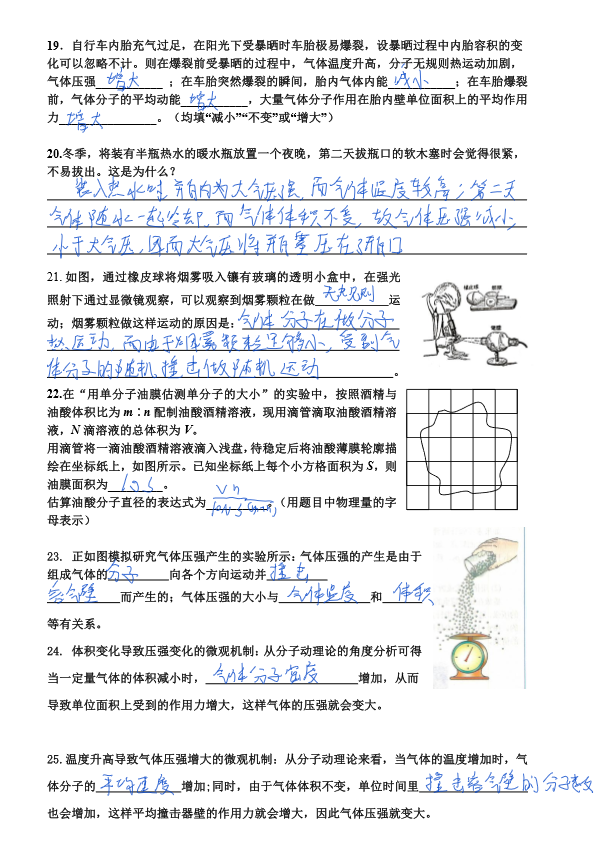 19．自行车内胎充气过足，在阳光下受暴晒时车胎极易爆裂，设暴晒过程中内胎容积的变
化可以忽略不计。则在爆裂前受暴晒的过程中，气体温度升高，分子无规则热运动加剧，
气体压强 增大 ；在车胎突然爆裂的瞬间，胎内气体内能 减小 ；在车胎爆裂
前，气体分子的平均动能 增大 ，大量气体分子作用在胎内壁单位面积上的平均作用
力 增大 。（均填“减小”“不变”或“增大”）
20.冬季，将装有半瓶热水的暖水瓶放置一个夜晚，第二天拔瓶口的软木塞时会觉得很紧，
不易拔出。这是为什么？
装入热水时，瓶内为大气压强，而气体温度较高；第二天
气体随水一起冷却，而气体体积不变，故气体压强减小，
小于大气压，因而大气压将瓶塞压在了瓶口
21.如图，通过橡皮球将烟雾吸入镶有玻璃的透明小盒中，在强光
照射下通过显微镜观察，可以观察到烟雾颗粒在做 无规则 运
动；烟雾颗粒做这样运动的原因是： 气体分子在做分子
热运动，而由于烟雾颗粒足够小，受到气
体分子的随机撞击做随机运动 。
22.在“用单分子油膜估测单分子的大小”的实验中，按照酒精与
油酸体积比为 m∶n 配制油酸酒精溶液，现用滴管滴取油酸酒精溶
液，N 滴溶液的总体积为 V。
用滴管将一滴油酸酒精溶液滴入浅盘，待稳定后将油酸薄膜轮廓描
绘在坐标纸上，如图所示。已知坐标纸上每个小方格面积为 S，则
油膜面积为 。
估算油酸分子直径的表达式为 （用题目中物理量的字
母表示）
23. 正如图模拟研究气体压强产生的实验所示：气体压强的产生是由于
组成气体的 分子 向各个方向运动并 撞击
容器壁 而产生的；气体压强的大小与 气体温度 和 体积
等有关系。
24. 体积变化导致压强变化的微观机制：从分子动理论的角度分析可得
当一定量气体的体积减小时， 气体分子密度 增加，从而
导致单位面积上受到的作用力增大，这样气体的压强就会变大。
25.温度升高导致气体压强增大的微观机制：从分子动理论来看，当气体的温度增加时，气
体分子的 平均速度 增加;同时，由于气体体积不变，单位时间里 撞击容器壁的分子数
也会增加，这样平均撞击器壁的作用力就会增大，因此气体压强就变大。